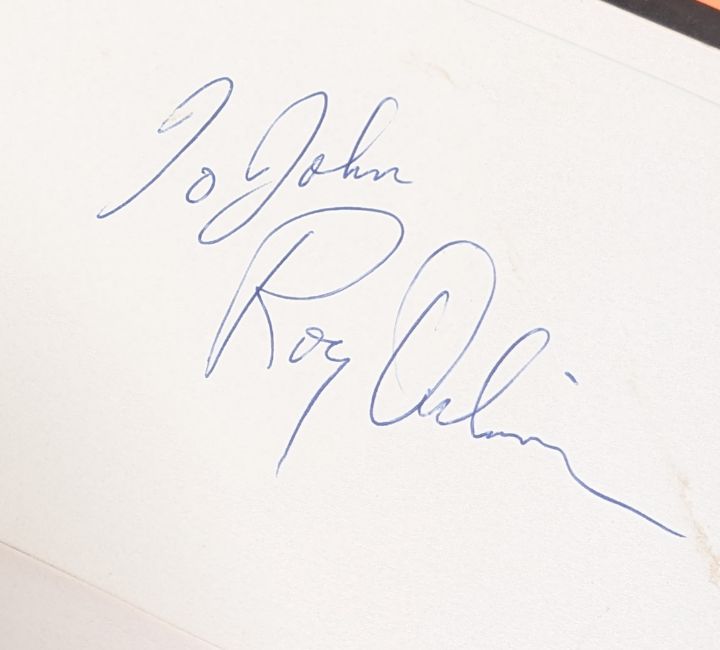 To John
Roy Orbison